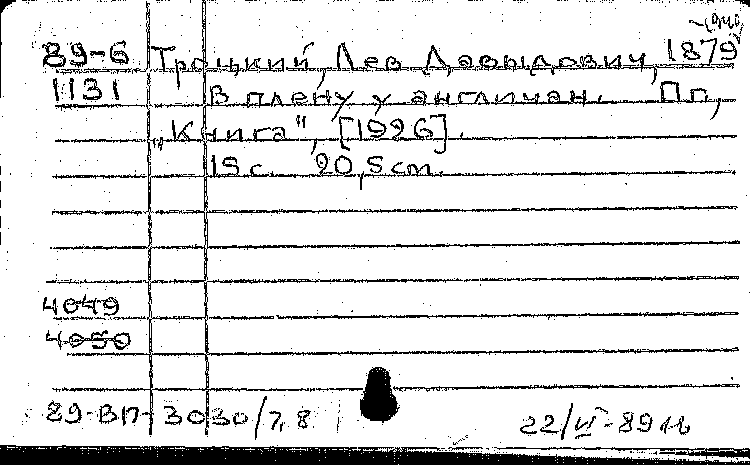 -1940
89-6 Троцкий, Лев Давыдович, 1879
1131 В плену у англичан. Пг,
„Книга", [1926].
15 с. 20,5 cm.
4049
4050
89-ВП-3030/7,8 22/VI-89